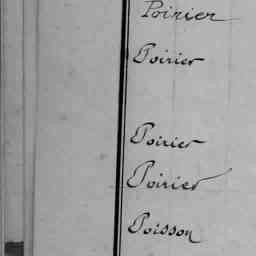 Poirier
Poirier
Poirier
Poirier
Poisson